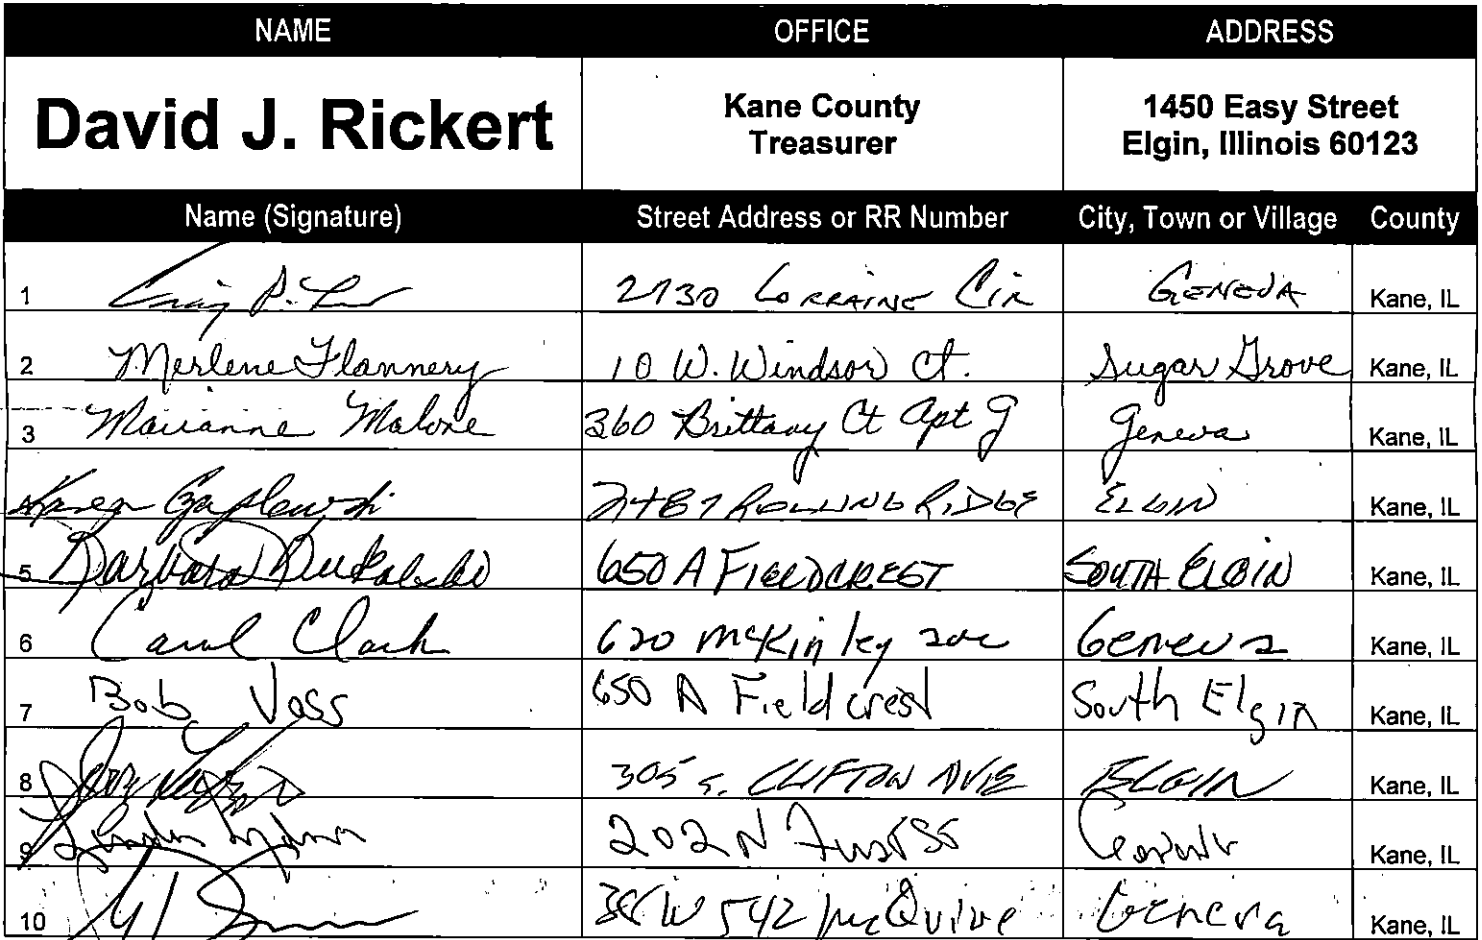 NAME OFFICE ADDRESS
David J. Rickert Kane County Treasurer 1450 Easy Street Elgin, Illinois 60123
Name (Signature) Street Address or RR Number City, Town or Village County
1 Craig P. 2730 Lorraine Cir GENEVA Kane, IL
2 Merlene Flannery 10 W. Windsor Ct. Sugar Grove Kane, IL
3 Marianne Malone 360 Brittany Ct Apt G Geneva Kane, IL
Karen 2487 ROLLING RIDGE ELGIN Kane, IL
5 Barbara 650 A FIELDCREST SOUTH ELGIN Kane, IL
6 Carol Clark 620 McKinley Geneva Kane, IL
7 Bob Voss 650 A Fieldcrest South Elgin Kane, IL
8 305 S. CLIFTON AVE ELGIN Kane, IL
9 202 N Geneva Kane, IL
10 38W542 McQuire Geneva Kane, IL